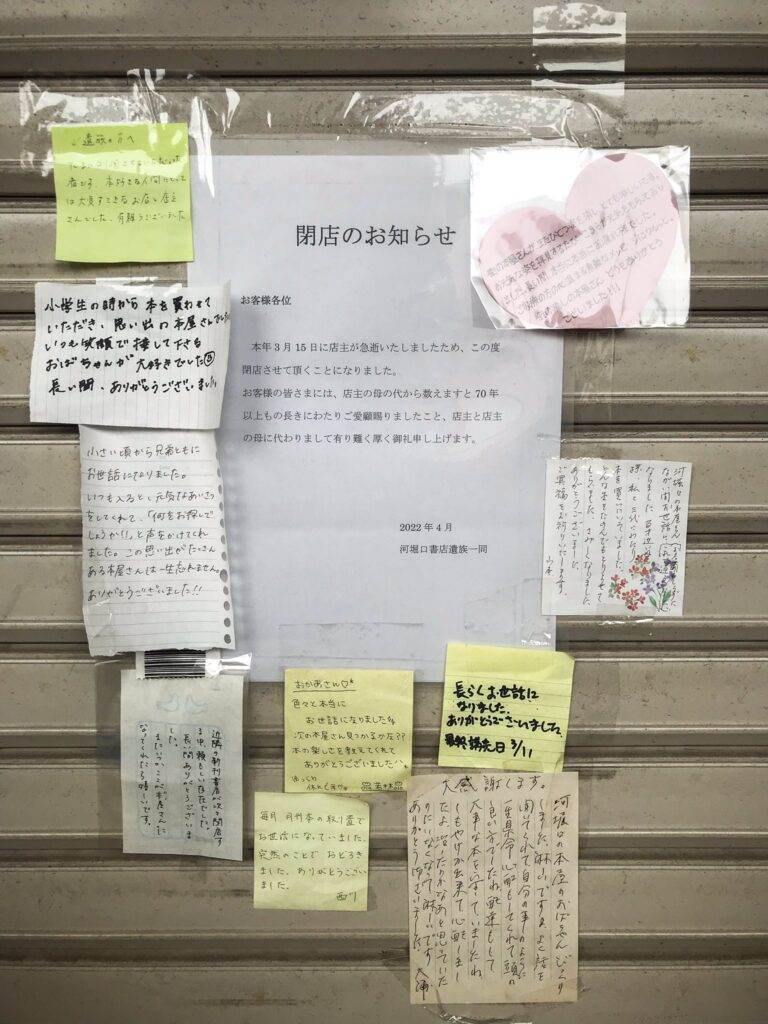 閉店のお知らせ
お客様各位
本年3月15日に店主が急逝いたしましたため、この度
閉店させて頂くことになりました。
お客様の皆さまには、店主の母の代から数えますと70年
以上もの長きにわたりご愛顧賜りましたこと、店主と店主
の母に代わりまして有り難く厚く御礼申し上げます。
2022年4月
河堀口書店遺族一同
ご遺族の方へ
者です。本好きな人間にとって
は大見すてきなお店と店主
さんでした。有難うございました
小学生の時から本を買わせて
いただき、思い出の本屋さんでした
いつも笑顔で接して下さる
おばちゃんが大好きでした
長い間、ありがとうございました
小さい頃から兄弟ともに
お世話になりました。
いつも入ると、元気なあいさつ
をしてくれて、「何をお探しで
しょうか!!」と声をかけてくれ
ました。この思い出がたくさん
ある本屋さんは一生忘れません。
ありがとうございました!!
近隣の新刊書店が次々閉店す
る中、頼もしい存在でした。
長い間ありがとうございま
した。
またいつか、ここが本屋さんに
なってくれたら嬉しいです。
おかあさん♡
色々と本当に
お世話になりました
次の本屋さん見つかるかな??
本の楽しさを教えてくれて
ありがとうございました
ゆっくり
毎月 月刊本の取り置で
お世話になっていました。
突然のことで おどろき
ました。ありがとうござい
ました。
西川
長らくお世話に
なりました。
ありがとうございました。
最終購売日 3/11
河堀口の本屋さん
ながい間お世話に
なりました。
様、私と三代にわたり
本を買いにいっていました。
もらいました。さみしくなりました。
ありがとうございました。
ご冥福をお祈りいたします。
山本
大感謝します。
河堀口の本屋のおばちゃん びっくり
しました。淋しいですネ。よく話を
聞いてくれて自分の事のように
一生県命心配もしてくれて頭の
良い方でしたね。配達もして
大事な本を
しもやけが出来て心配しまし
たよ。
ありがとう御座いました。大浦